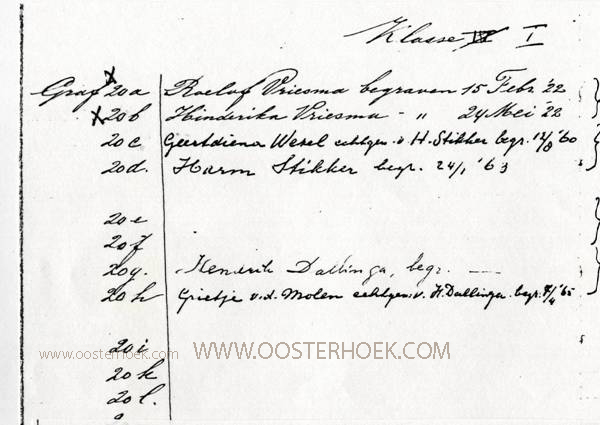 Klasse I
Graf x 20a Roelof Vriesma begraven 15 Febr. '22
x 20b Hinderika Vriesma - " 24 Mei '22
20c Geertdiena Wezel echtgen. v. H. Stikker begr. 12/8 '60
20d. Harm Stikker begr. 24/1 '63
20e
20f
20g. Hendrik Dallinga, begr. —
20h Grietje v.d. Molen echtgen. v. H. Dallinga begr. /4 '65
20i
www.oosterhoek.com WWW.OOSTERHOEK.COM
20k
20l.